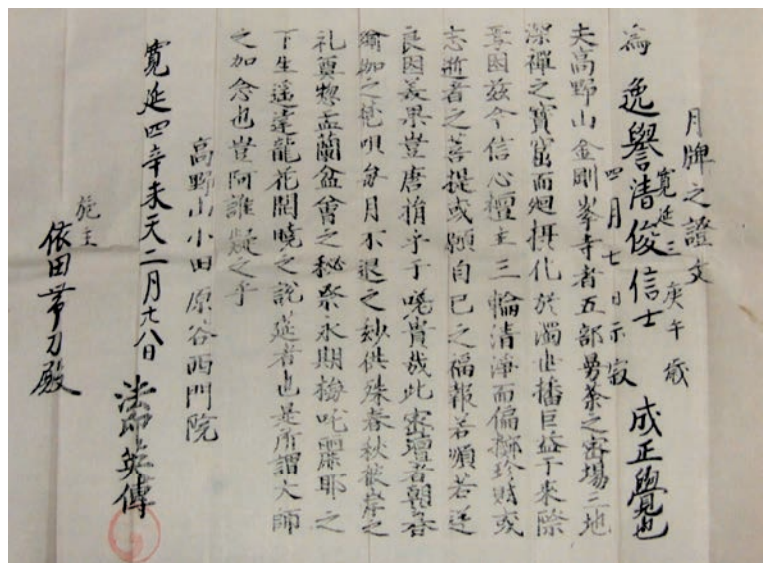 月牌之證文
寛延三庚午歳
四月七日示寂
為逸譽清俊信士 成正覺也
夫高野山金剛峯寺者五部曼荼之密場三地
深禪之寶窟而廻摂化於濁世播巨益于来際
因茲今信心檀主三輪清浄而偏擲珍財或
志逝者之菩提或願自己之福報若順若逆
良因美果豈唐捐乎于嗟貴哉此密壇者朝昏
瑜伽之梵唄毎月不退之妙供殊春秋彼岸之
礼奠惣盂蘭盆會之秘祭永期
下生遥達龍花開曉之説筵者也是所謂大師
之加念也豈阿誰疑之乎
高野山小田原谷西門院
寛延四辛未天二月十八日 法印英傳
施主
依田帯刀殿